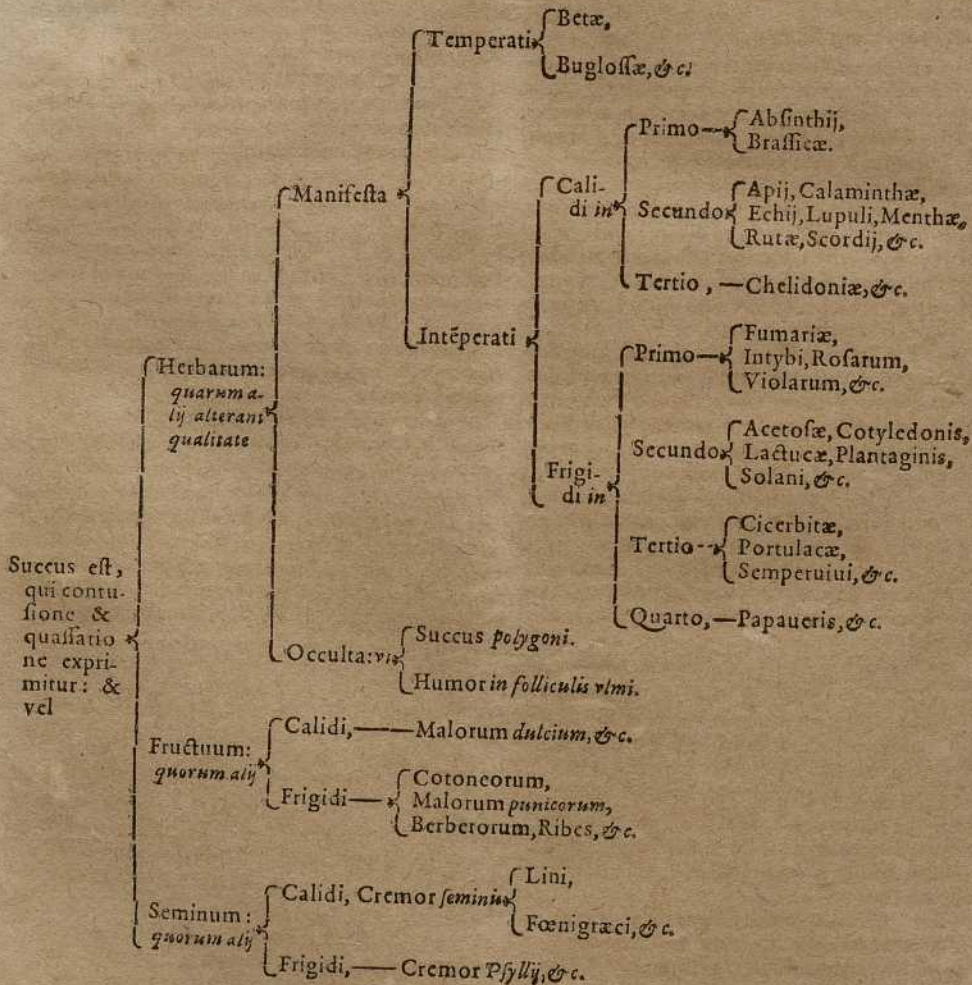 Succus est,
qui contu-
sione &
quassatio
ne expri-
mitur: &
vel
Herbarum:
quarum a-
lij alterant
qualitate
Manifesta
Temperati
Betæ,
Buglossæ, &c.
Intẽperati
Cali-
di in
Primo
Absinthij,
Brassicæ.
Secundo
Apij, Calaminthæ,
Echij, Lupuli, Menthæ,
Rutæ, Scordij, &c.
Tertio, Chelidoniæ, &c.
Frigi-
di in
Primo
Fumariæ,
Intybi, Rosarum,
Violarum, &c.
Secundo
Acetosæ, Cotyledonis,
Lactucæ, Plantaginis,
Solani, &c.
Tertio
Cicerbitæ,
Portulacæ,
Semperuiui, &c.
Quarto, Papaueris, &c.
Occulta: vt
Succus polygoni.
Humor in folliculis vlmi.
Fructuum:
quorum alij
Calidi, Malorum dulcium, &c.
Frigidi
Cotoneorum,
Malorum punicorum,
Berberorum, Ribes, &c.
Seminum:
quorum alij
Calidi, Cremor seminis
Lini,
Fœnigræci, &c.
Frigidi, Cremor Psyllij, &c.